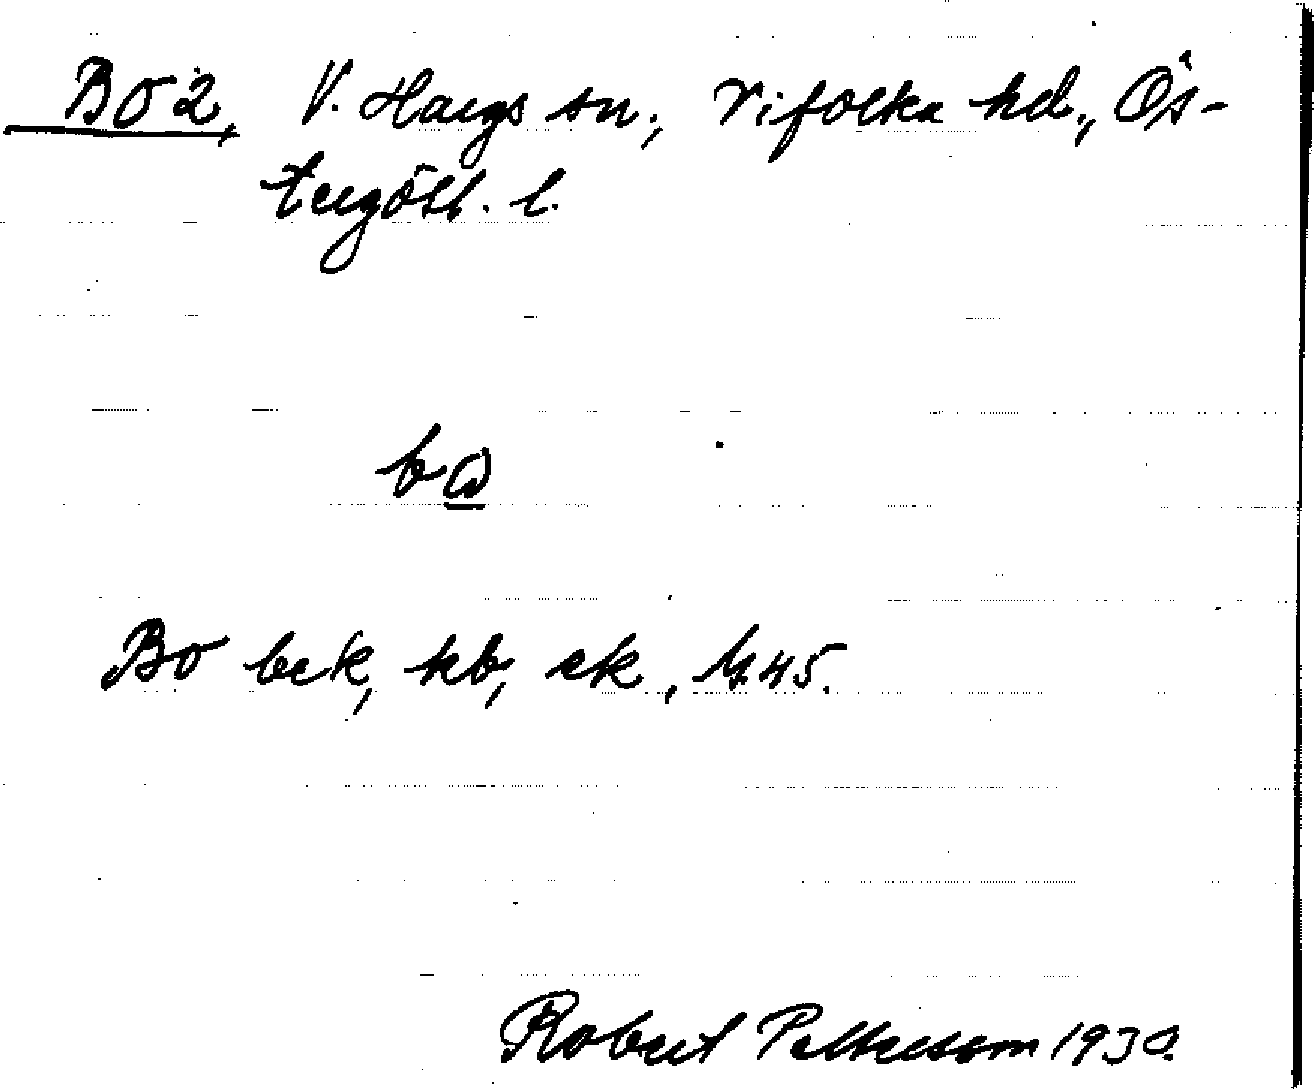 Bo 2, V. Hargs sn., Vifolka hd., Ös-
tergötl. l.
bω
Bo bek, kb, ek, 1/4 45.
Robert Pettersson 1930.